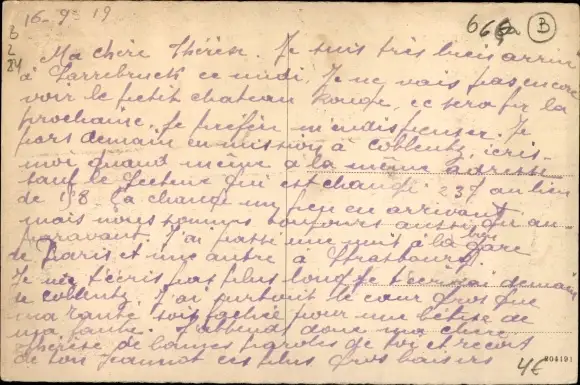 16 - 9 - 19
66 B
B
2
84
Ma chère Thérèse. Je suis très bien arrivé
à Sarrebruck ce midi. Je ne vais pas encore
voir le petit chateau rouge, ce sera pr la
prochaine. Je préfère m'en dispenser. Je
pars demain en mission à Coblentz, écris-
moi quand même à la même adresse
sauf le Secteur qui est changé. 237 au lieu
de 178. Ca change un peu en arrivant
mais nous sommes toujours aussi qu'au-
paravant. J'ai passé une nuit à la gare
de Paris et une autre à Strasbourg.
Je ne t'écris pas plus long je t'écrirai demain
de Coblentz. J'ai surtout le cœur gros que
ma tante soit fachée pour une bêtise de
ma faute. J'attends donc ma chère
Thérèse de bonnes paroles de toi et reçois
de ton Jeannot ces plus gros baisers
4€